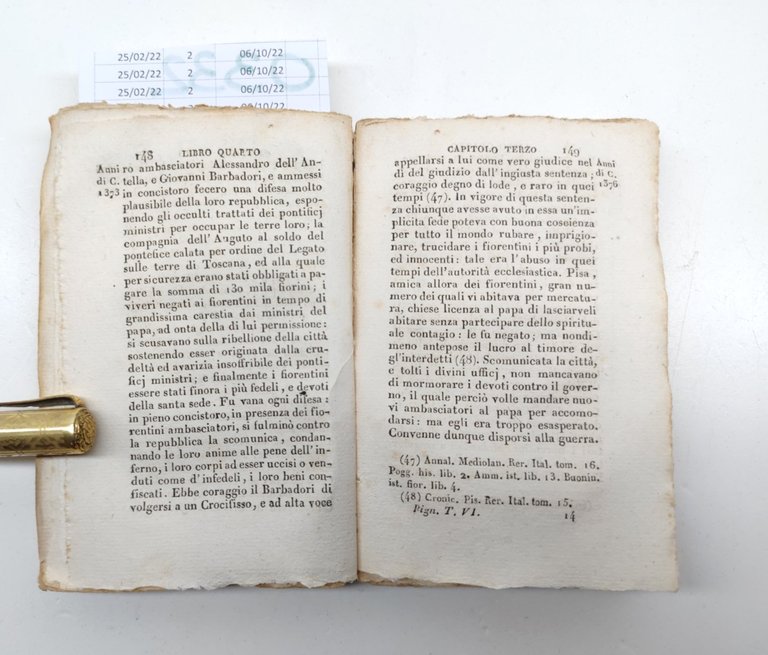 25/02/22 2 06/10/22
25/02/22 2 06/10/22
25/02/22 2 06/10/22
06/10/22
148 LIBRO QUARTO
Anni ro ambasciatori Alessandro dell' An-
di C. tella, e Giovanni Barbadori, e ammessi
1373 in concistoro fecero una difesa molto
plausibile della loro repubblica, espo-
nendo gli occulti trattati dei pontificj
ministri per occupar le terre loro; la
compagnia dell' Auguto al soldo del
pontefice calata per ordine del Legato
sulle terre di Toscana, ed alla quale
per sicurezza erano stati obbligati a pa-
gare la somma di 130 mila fiorini; i
viveri negati ai fiorentini in tempo di
grandissima carestia dai ministri del
papa, ad onta della di lui permissione:
si scusavano sulla ribellione della città
sostenendo esser originata dalla cru-
deltà ed avarizia insoffribile dei ponti-
ficj ministri; e finalmente i fiorentini
essere stati finora i più fedeli, e devoti
della santa sede. Fu vana ogni difesa:
in pieno concistoro, in presenza dei fio-
rentini ambasciatori, si fulminò contro
la repubblica la scomunica, condan-
nando le loro anime alle pene dell' in-
ferno, i loro corpi ad esser uccisi o ven-
duti come d' infedeli, i loro beni con-
fiscati. Ebbe coraggio il Barbadori di
volgersi a un Crocifisso, e ad alta voce
CAPITOLO TERZO 149
appellarsi a lui come vero giudice nel Anni
di del giudizio dall' ingiusta sentenza; di C.
coraggio degno di lode, e raro in quei 1376
tempi (47). In vigore di questa senten-
za chiunque avesse avuto in essa un' im-
plicita fede poteva con buona coscienza
per tutto il mondo rubare, imprigio-
nare, trucidare i fiorentini i più probi,
ed innocenti: tale era l' abuso in quei
tempi dell' autorità ecclesiastica. Pisa,
amica allora dei fiorentini, gran nu-
mero dei quali vi abitava per mercatu-
ra, chiese licenza al papa di lasciarveli
abitare senza partecipare dello spiritu-
ale contagio: le fu negato; ma nondi-
meno antepose il lucro al timore de-
gl' interdetti (48). Scomunicata la città,
e tolti i divini ufficj, non mancavano
di mormorare i devoti contro il gover-
no, il quale perciò volle mandare nuo-
vi ambasciatori al papa per accomo-
darsi: ma egli era troppo esasperato.
Convenne dunque disporsi alla guerra.
(47) Annal. Mediolan. Rer. Ital. tom. 16.
Pogg. his. lib. 2. Amm. ist. lib. 13. Buonin.
ist. fior. lib. 4.
(48) Cronic. Pis. Rer. Ital. tom. 15.
Pign. T. VI. 14